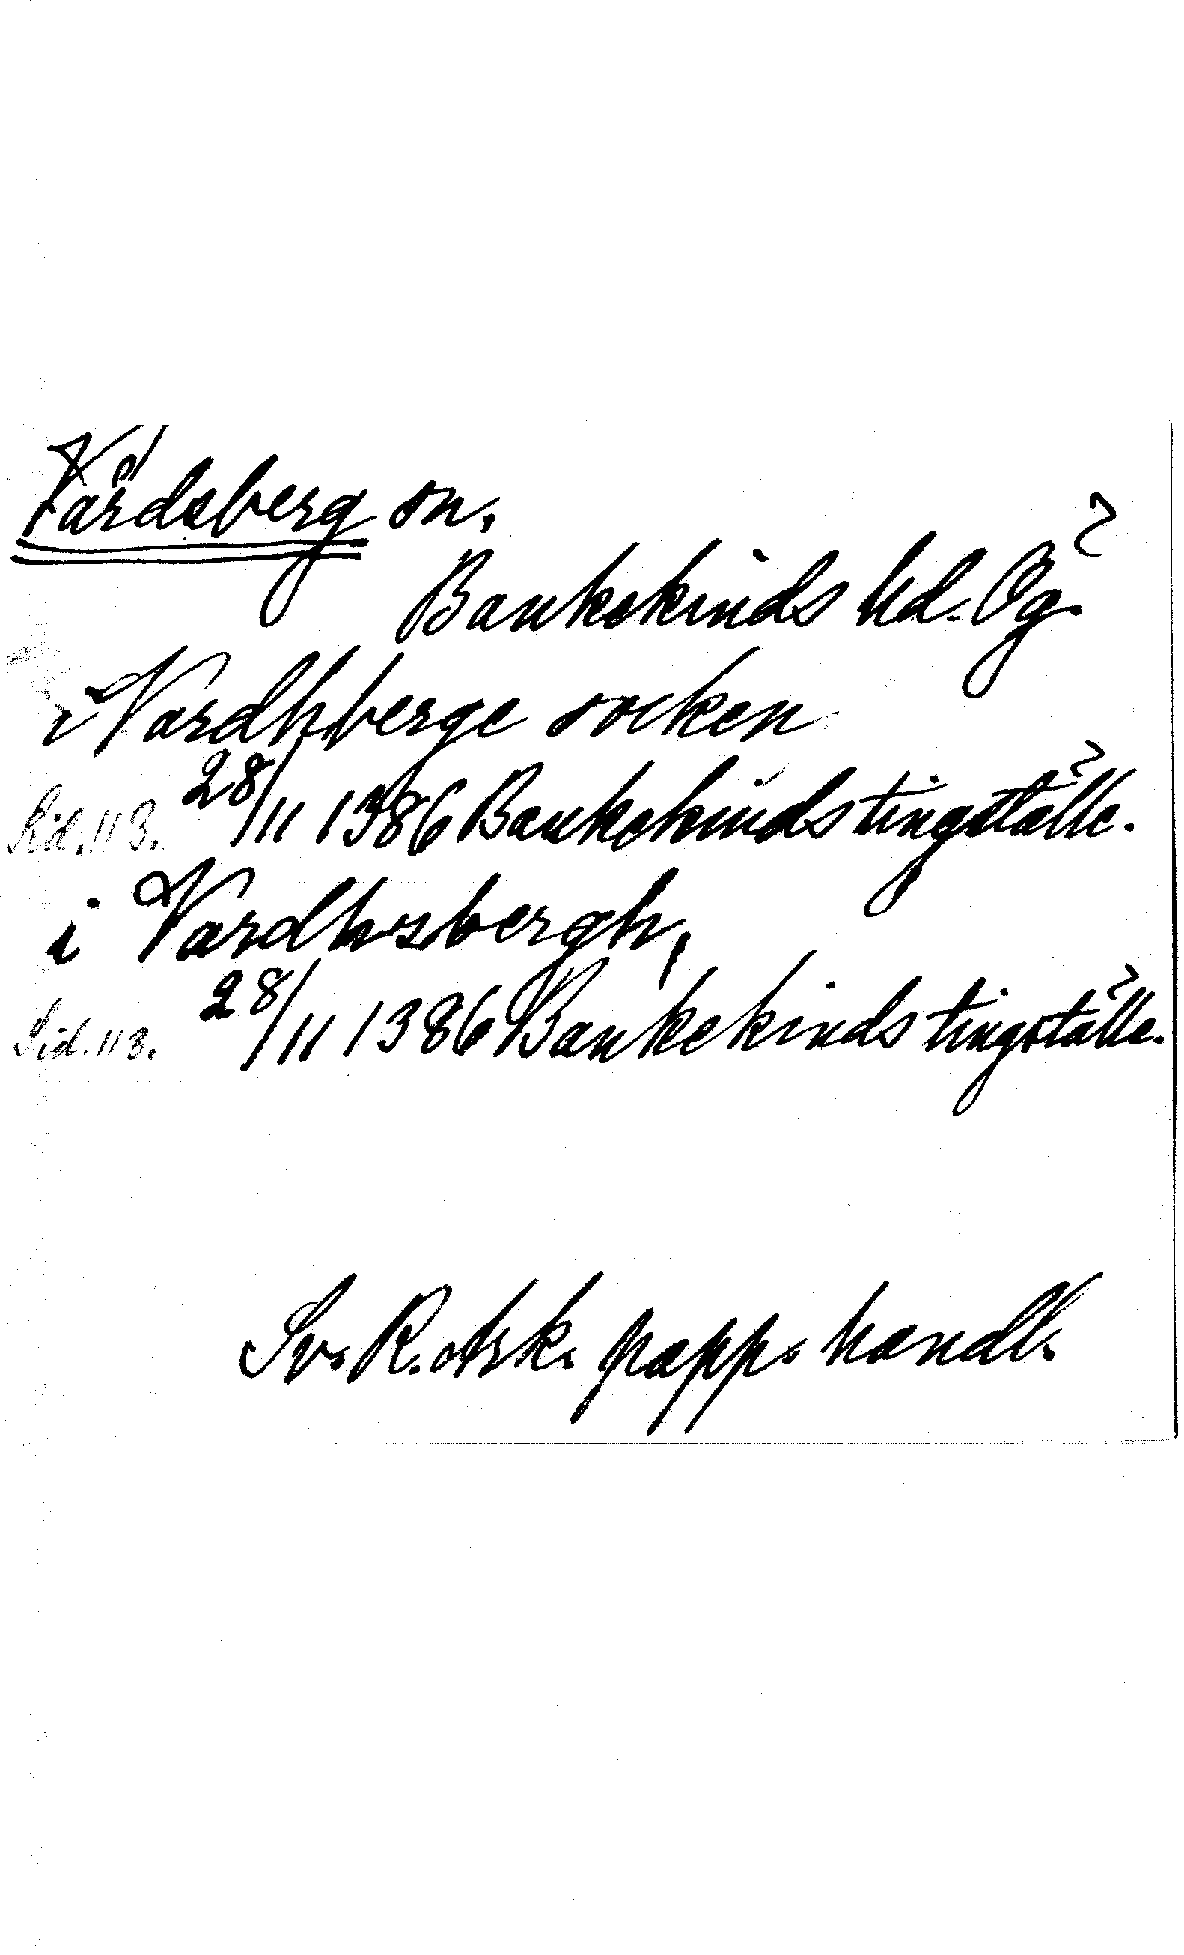 Vårdsberg sn.
Bankekinds hd. Ög.
i Vardhberge socken
Sid. 113. 28/11 1386 Bankekinds tingställe.
i Vardhsbergh,
Sid. 113. 28/11 1386 Bankekinds tingställe.
Sv. R. Ark. papp. handl.